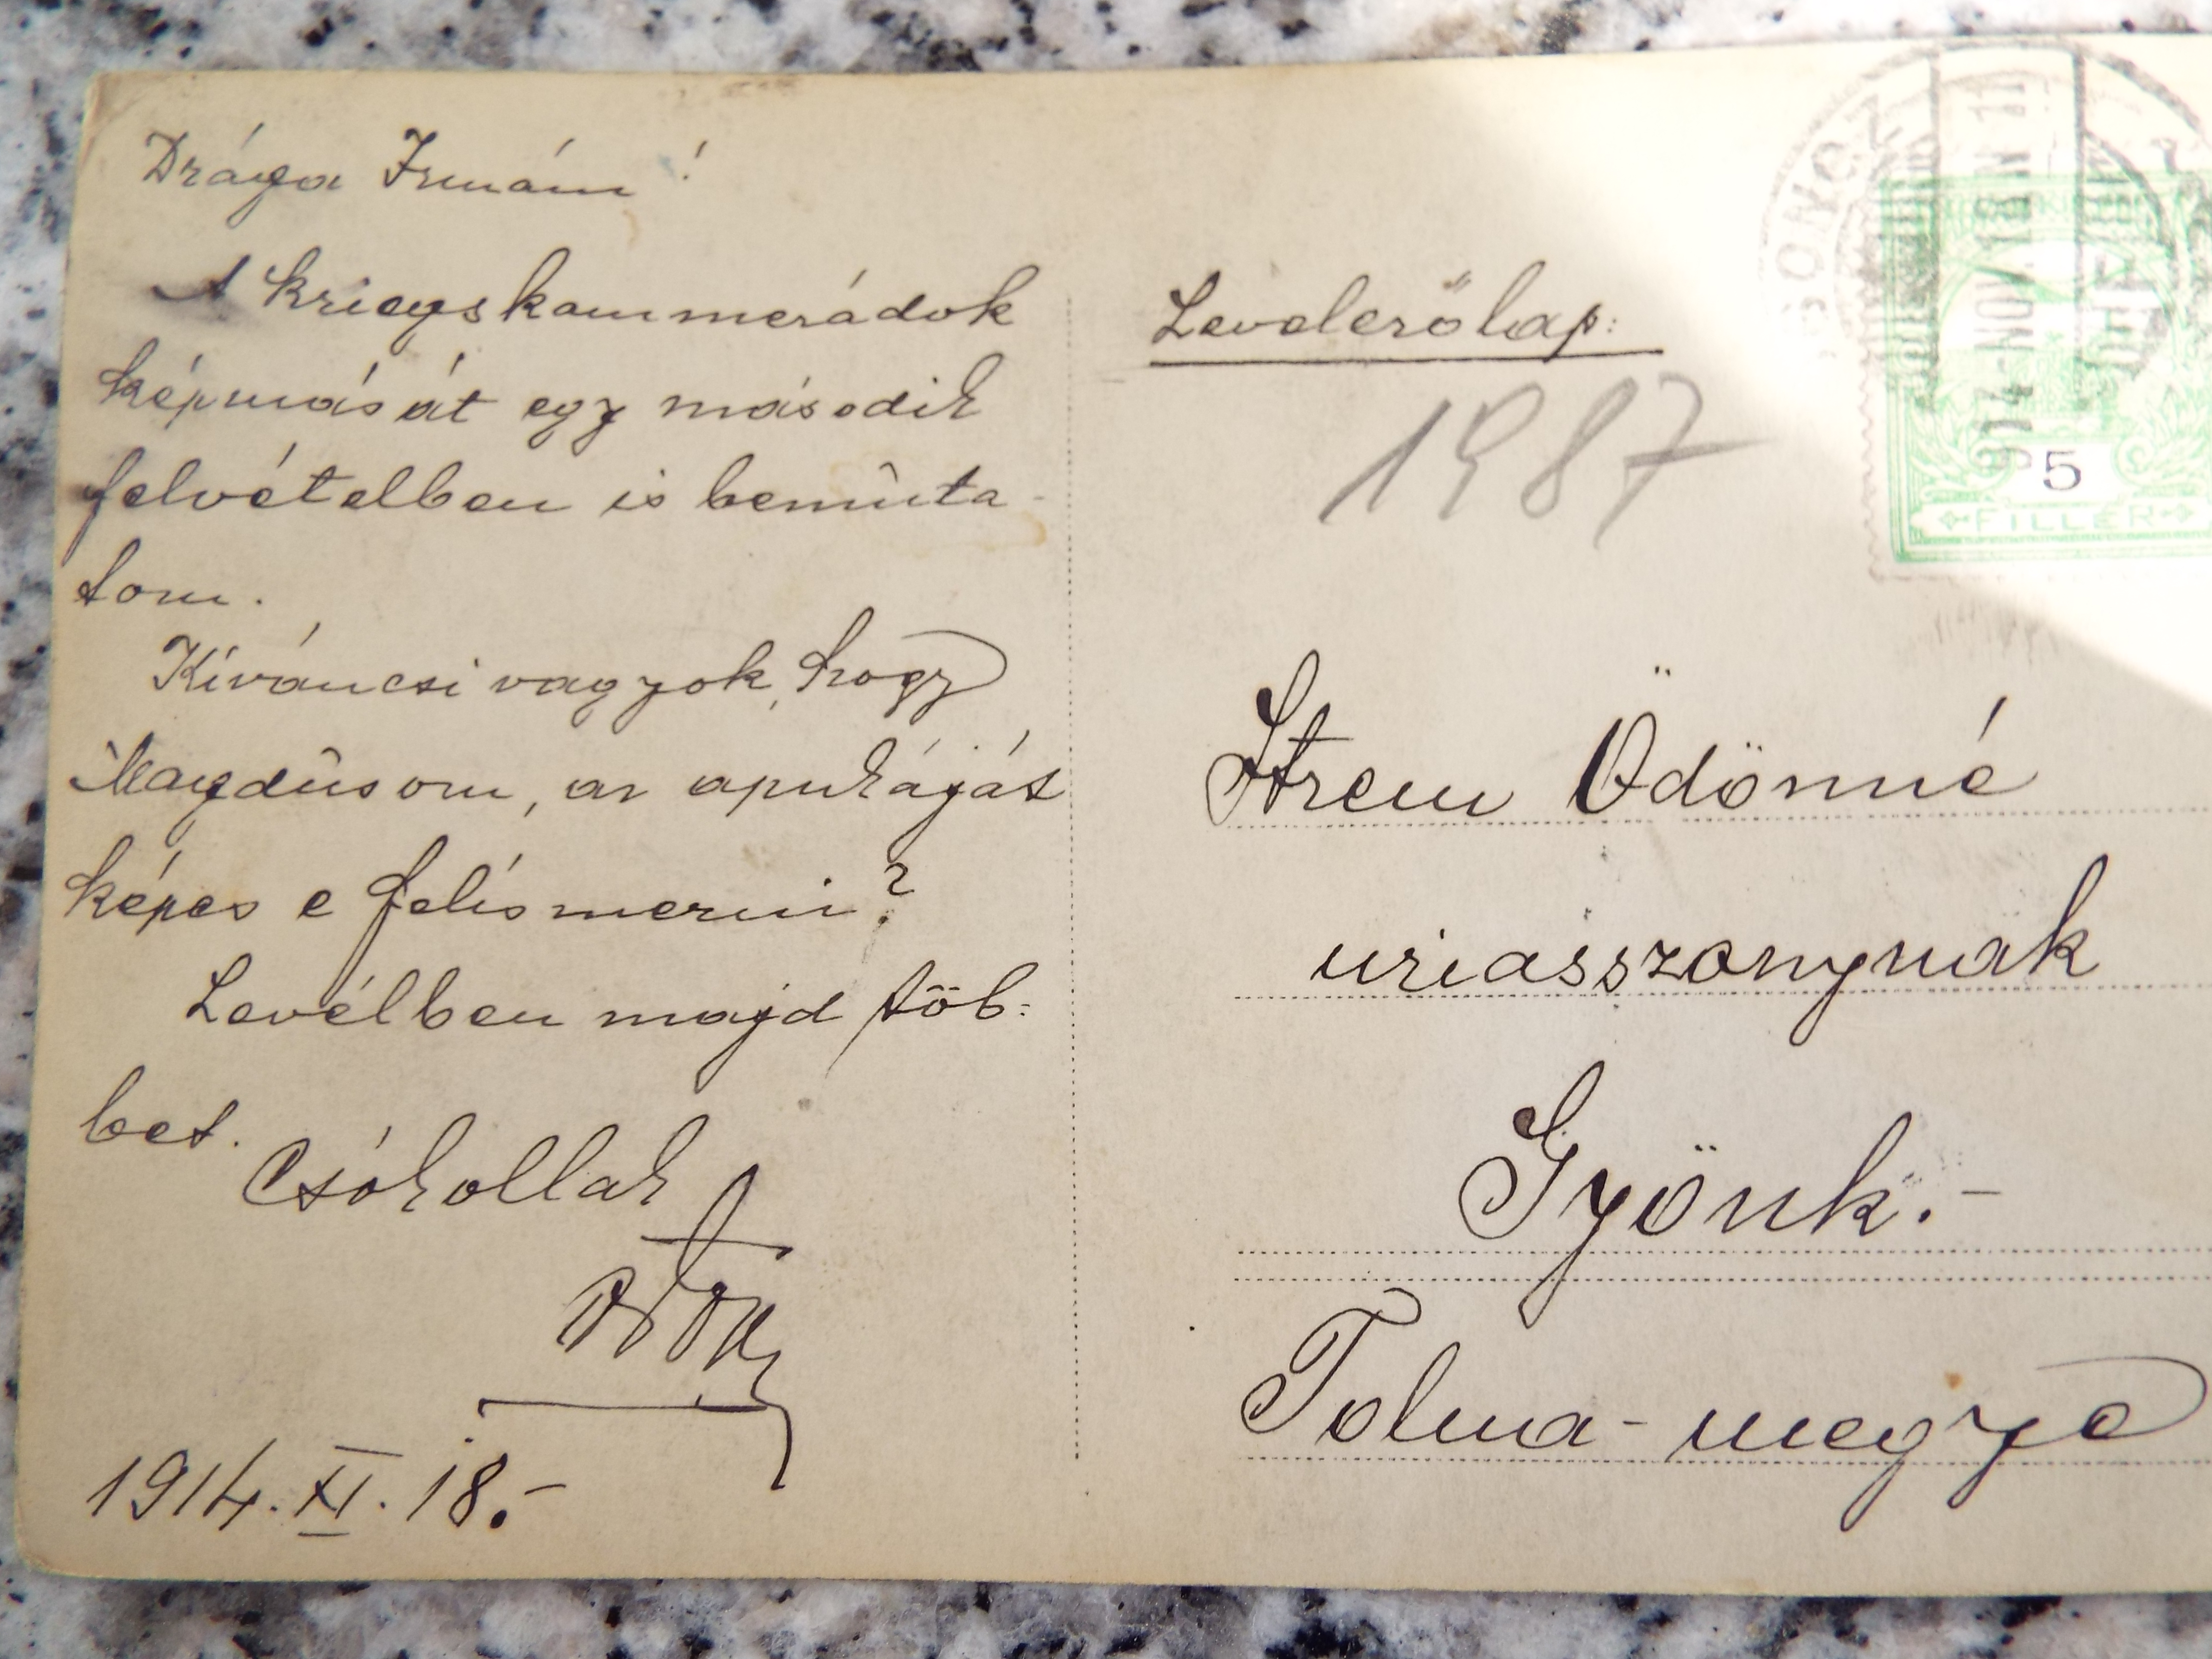 Drága Irmám!
A kriegskammerádok
képmását egy második
felvételben is bemûta-
tom.
Kíváncsi vagyok, hogy
Magdûsom, az apukáját
képes e felísmerni?
Levélben majd töb-
bet.
Csókollak
1914. XI. 18.-
Levelezőlap:
1987
914 NOV 18 N 11
5
FILLÉR
Strem Ödönné
uriasszonynak
Gyönk.-
Tolna-megye